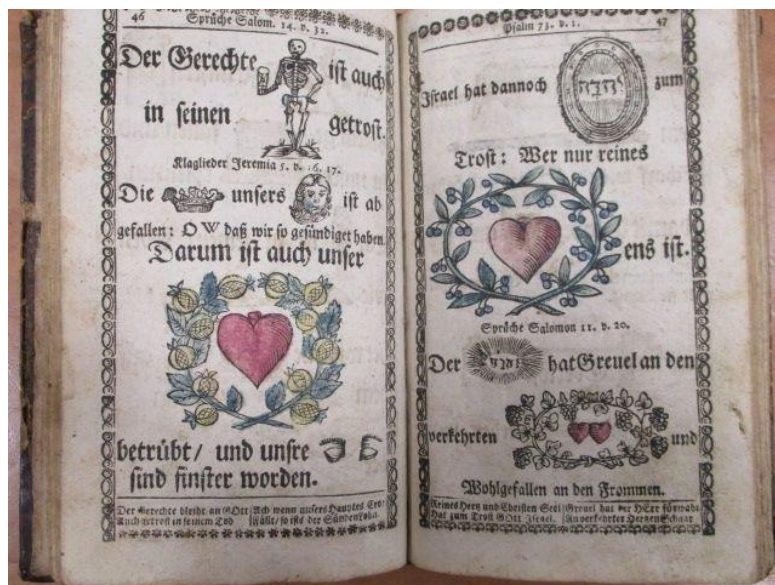 46
Sprüche Salom. 14. v. 32.
Der Gerechte ist auch
in seinen getrost.
Klaglieder Jeremia 5. v. 16. 17.
Die unsers ist ab
gefallen: O W daß wir so gesündiget haben.
Darum ist auch unser
betrübt/ und unsre
sind finster worden.
Der Gerechte bleibt an GOtt
Auch getrost in seinem Tod
Ach wenn unsers Hauptes
Fällt/ so ists der Sünden Lohn.
Psalm 73. v. 1. 47
Israel hat dannoch יהוה zum
Trost: Wer nur reines
ens ist.
Sprüche Salomon 11. v. 20.
Der יהוה hat Greuel an den
verkehrten und
Wohlgefallen an den Frommen.
Reines Hertz und Christen Seel
Hat zum Trost GOtt Israel.
Greuel hat der HErr fürwahr
An verkehrter Hertzen Schaar